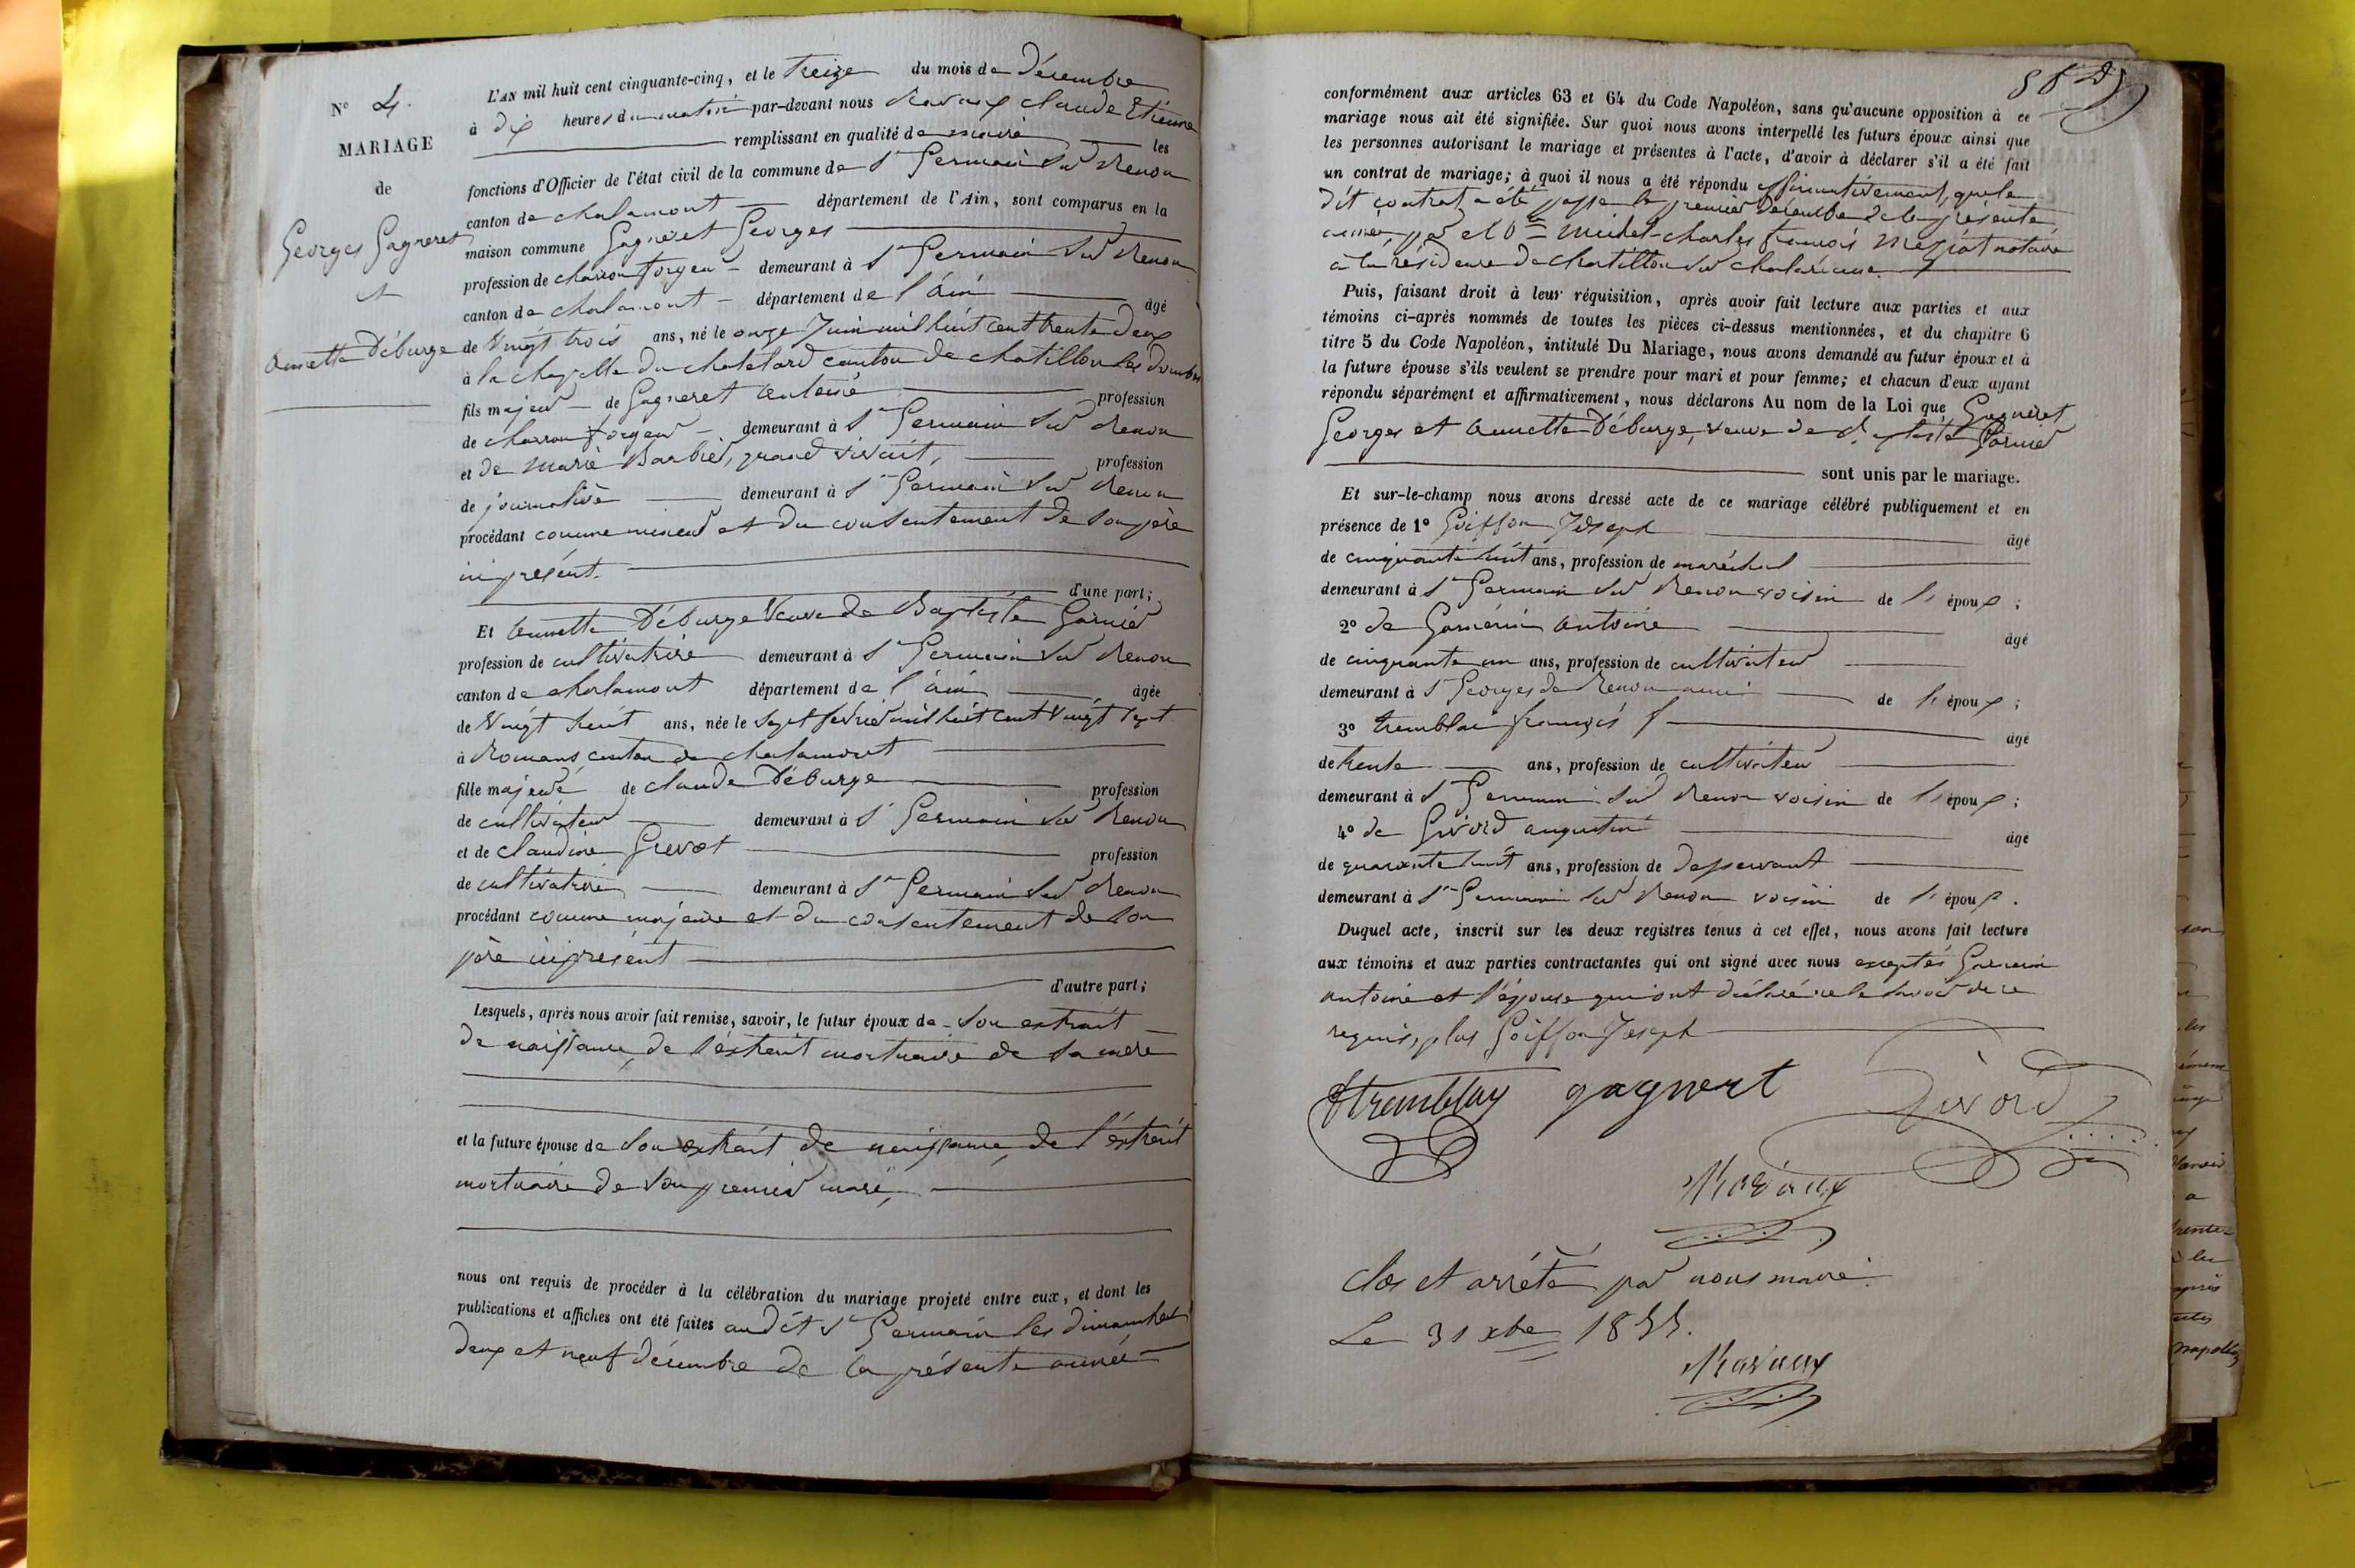 N° 4.
MARIAGE
de
Georges Gagneret
et
Annette Déburge
L'AN mil huit cent cinquante-cinq, et le treize du mois de Décembre
à dix heures du matin par-devant nous Claude Etienne
remplissant en qualité de maire les
fonctions d'Officier de l'état civil de la commune de St Germain sur Renon
canton de chalamont département de l'Ain, sont comparus en la
maison commune Gagneret Georges
profession de charron forgeur demeurant à St Germain sur Renon
canton de chalamont département de l'ain âgé
de vingt trois ans, né le onze Juin mil huit cent trente deux
à la chapelle du chatelard canton de chatillon les dombes
fils majeur de Gagneret antoine profession
de charron forgeur demeurant à St Germain sur Renon
et de marie Barbier, quand vivait, profession
de journalière demeurant à St Germain sur Renon
procédant comme mineur et du consentement de son père
ici présent.
d'une part;
Et Annette Déburge Veuve de Baptiste Garnier
profession de cultivatrice demeurant à St Germain sur Renon
canton de chalamont département de l'ain âgée
de vingt huit ans, née le sept février mil huit cent vingt sept
à Romans canton de chalamont
fille majeure de claude Déburge profession
de cultivateur demeurant à St Germain sur Renon
et de claudine Grevat profession
de cultivatrice demeurant à St Germain sur Renon
procédant comme majeure et du consentement de son
père ici présent
d'autre part;
Lesquels, après nous avoir fait remise, savoir, le futur époux de son extrait
de naissance, de l'extrait mortuaire de sa mère
et la future épouse de son extrait de naissance, de l'extrait
mortuaire de son premier mari,
nous ont requis de procéder à la célébration du mariage projeté entre eux, et dont les
publications et affiches ont été faites audit St Germain les dimanches
deux et neuf décembre de la présente année
conformément aux articles 63 et 64 du Code Napoléon, sans qu'aucune opposition à ce
mariage nous ait été signifiée. Sur quoi nous avons interpellé les futurs époux ainsi que
les personnes autorisant le mariage et présentes à l'acte, d'avoir à déclarer s'il a été fait
un contrat de mariage; à quoi il nous a été répondu affirmativement, que le
dit contrat a été passé le premier Décembre de la présente
année, par Me michel-charles françois notaire
à la résidence de chatillon sur chalaronne.
Puis, faisant droit à leur réquisition, après avoir fait lecture aux parties et aux
témoins ci-après nommés de toutes les pièces ci-dessus mentionnées, et du chapitre 6
titre 5 du Code Napoléon, intitulé Du Mariage, nous avons demandé au futur époux et à
la future épouse s'ils veulent se prendre pour mari et pour femme; et chacun d'eux ayant
répondu séparément et affirmativement, nous déclarons Au nom de la Loi que Gagneret
Georges et Annette Déburge, veuve de Baptiste Garnier
sont unis par le mariage.
Et sur-le-champ nous avons dressé acte de ce mariage célébré publiquement et en
présence de 1° Goiffon Joseph âgé
de cinquante huit ans, profession de maréchal
demeurant à St Germain sur Renon voisin de l'époux;
2° de antoine âgé
de cinquante un ans, profession de cultivateur
demeurant à St Georges de Renon ami de l'époux;
3° tremblai françois âgé
de trente ans, profession de cultivateur
demeurant à St Germain sur Renon voisin de l'époux;
4° de Givord augustin âgé
de quarante huit ans, profession de desservant
demeurant à St Germain sur Renon voisin de l'époux.
Duquel acte, inscrit sur les deux registres tenus à cet effet, nous avons fait lecture
aux témoins et aux parties contractantes qui ont signé avec nous exceptés
antoine et l'épouse qui ont déclaré ne le savoir de ce
requis, plus Goiffon Joseph
tremblay gagneret Givord
clos et arrêté par nous maire.
Le 31 xbre 1855.